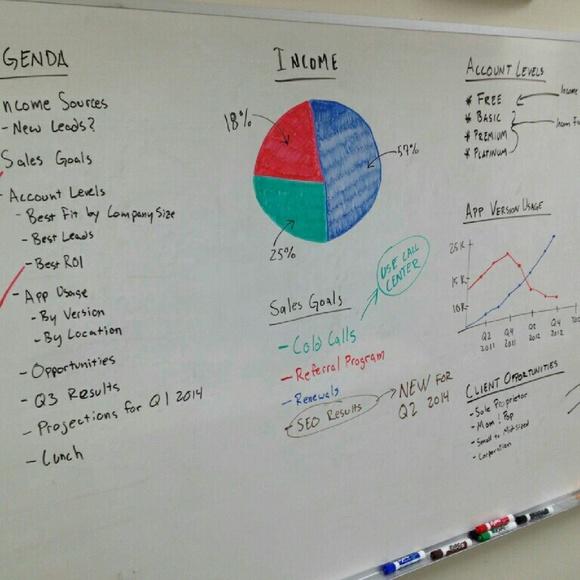 GENDA
ncome Sources
- New Leads?
Sales Goals
- Account Levels
- Best Fit by Company Size
- Best Leads
- Best ROI
- App Usage
- By Version
- By Location
- Opportunities
- Q3 Results
- Projections for Q1 2014
- Lunch
INCOME
18%
57%
25%
USE CALL
CENTER
Sales Goals
- Cold Calls
- Referral Program
- Renewals
- SEO Results
NEW FOR
Q2 2014
ACCOUNT LEVELS
* FREE
* BASIC
* PREMIUM
* PLATINUM
Income
APP VERSION USAGE
25K
15K
10K
Q2
2011
Q4
2012
Q2
Q4
2012
CLIENT OPPORTUNITIES
- Sole Proprietor
- Mom & Pop
- Small to Mid-sized
- Corporation